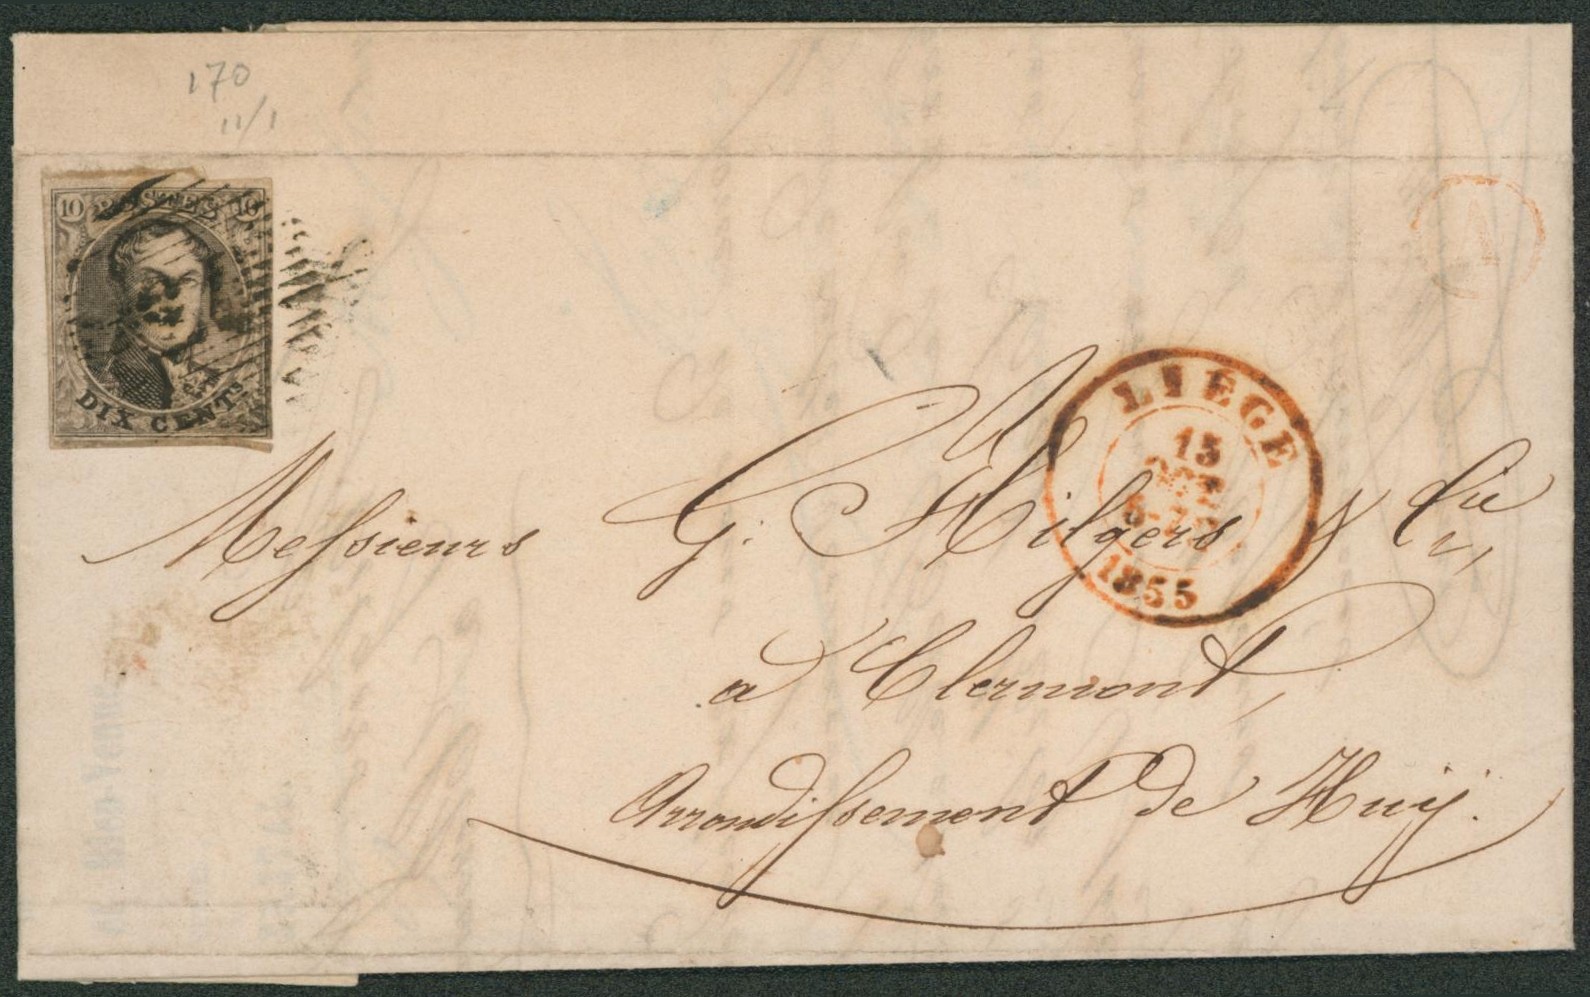 170
11/1
10 POSTES 10
DIX CENTS
LIEGE
15
OCT
1855
Messieurs G. Hilgers & Cie,
à Clermont,
Arrondissement de Huy.